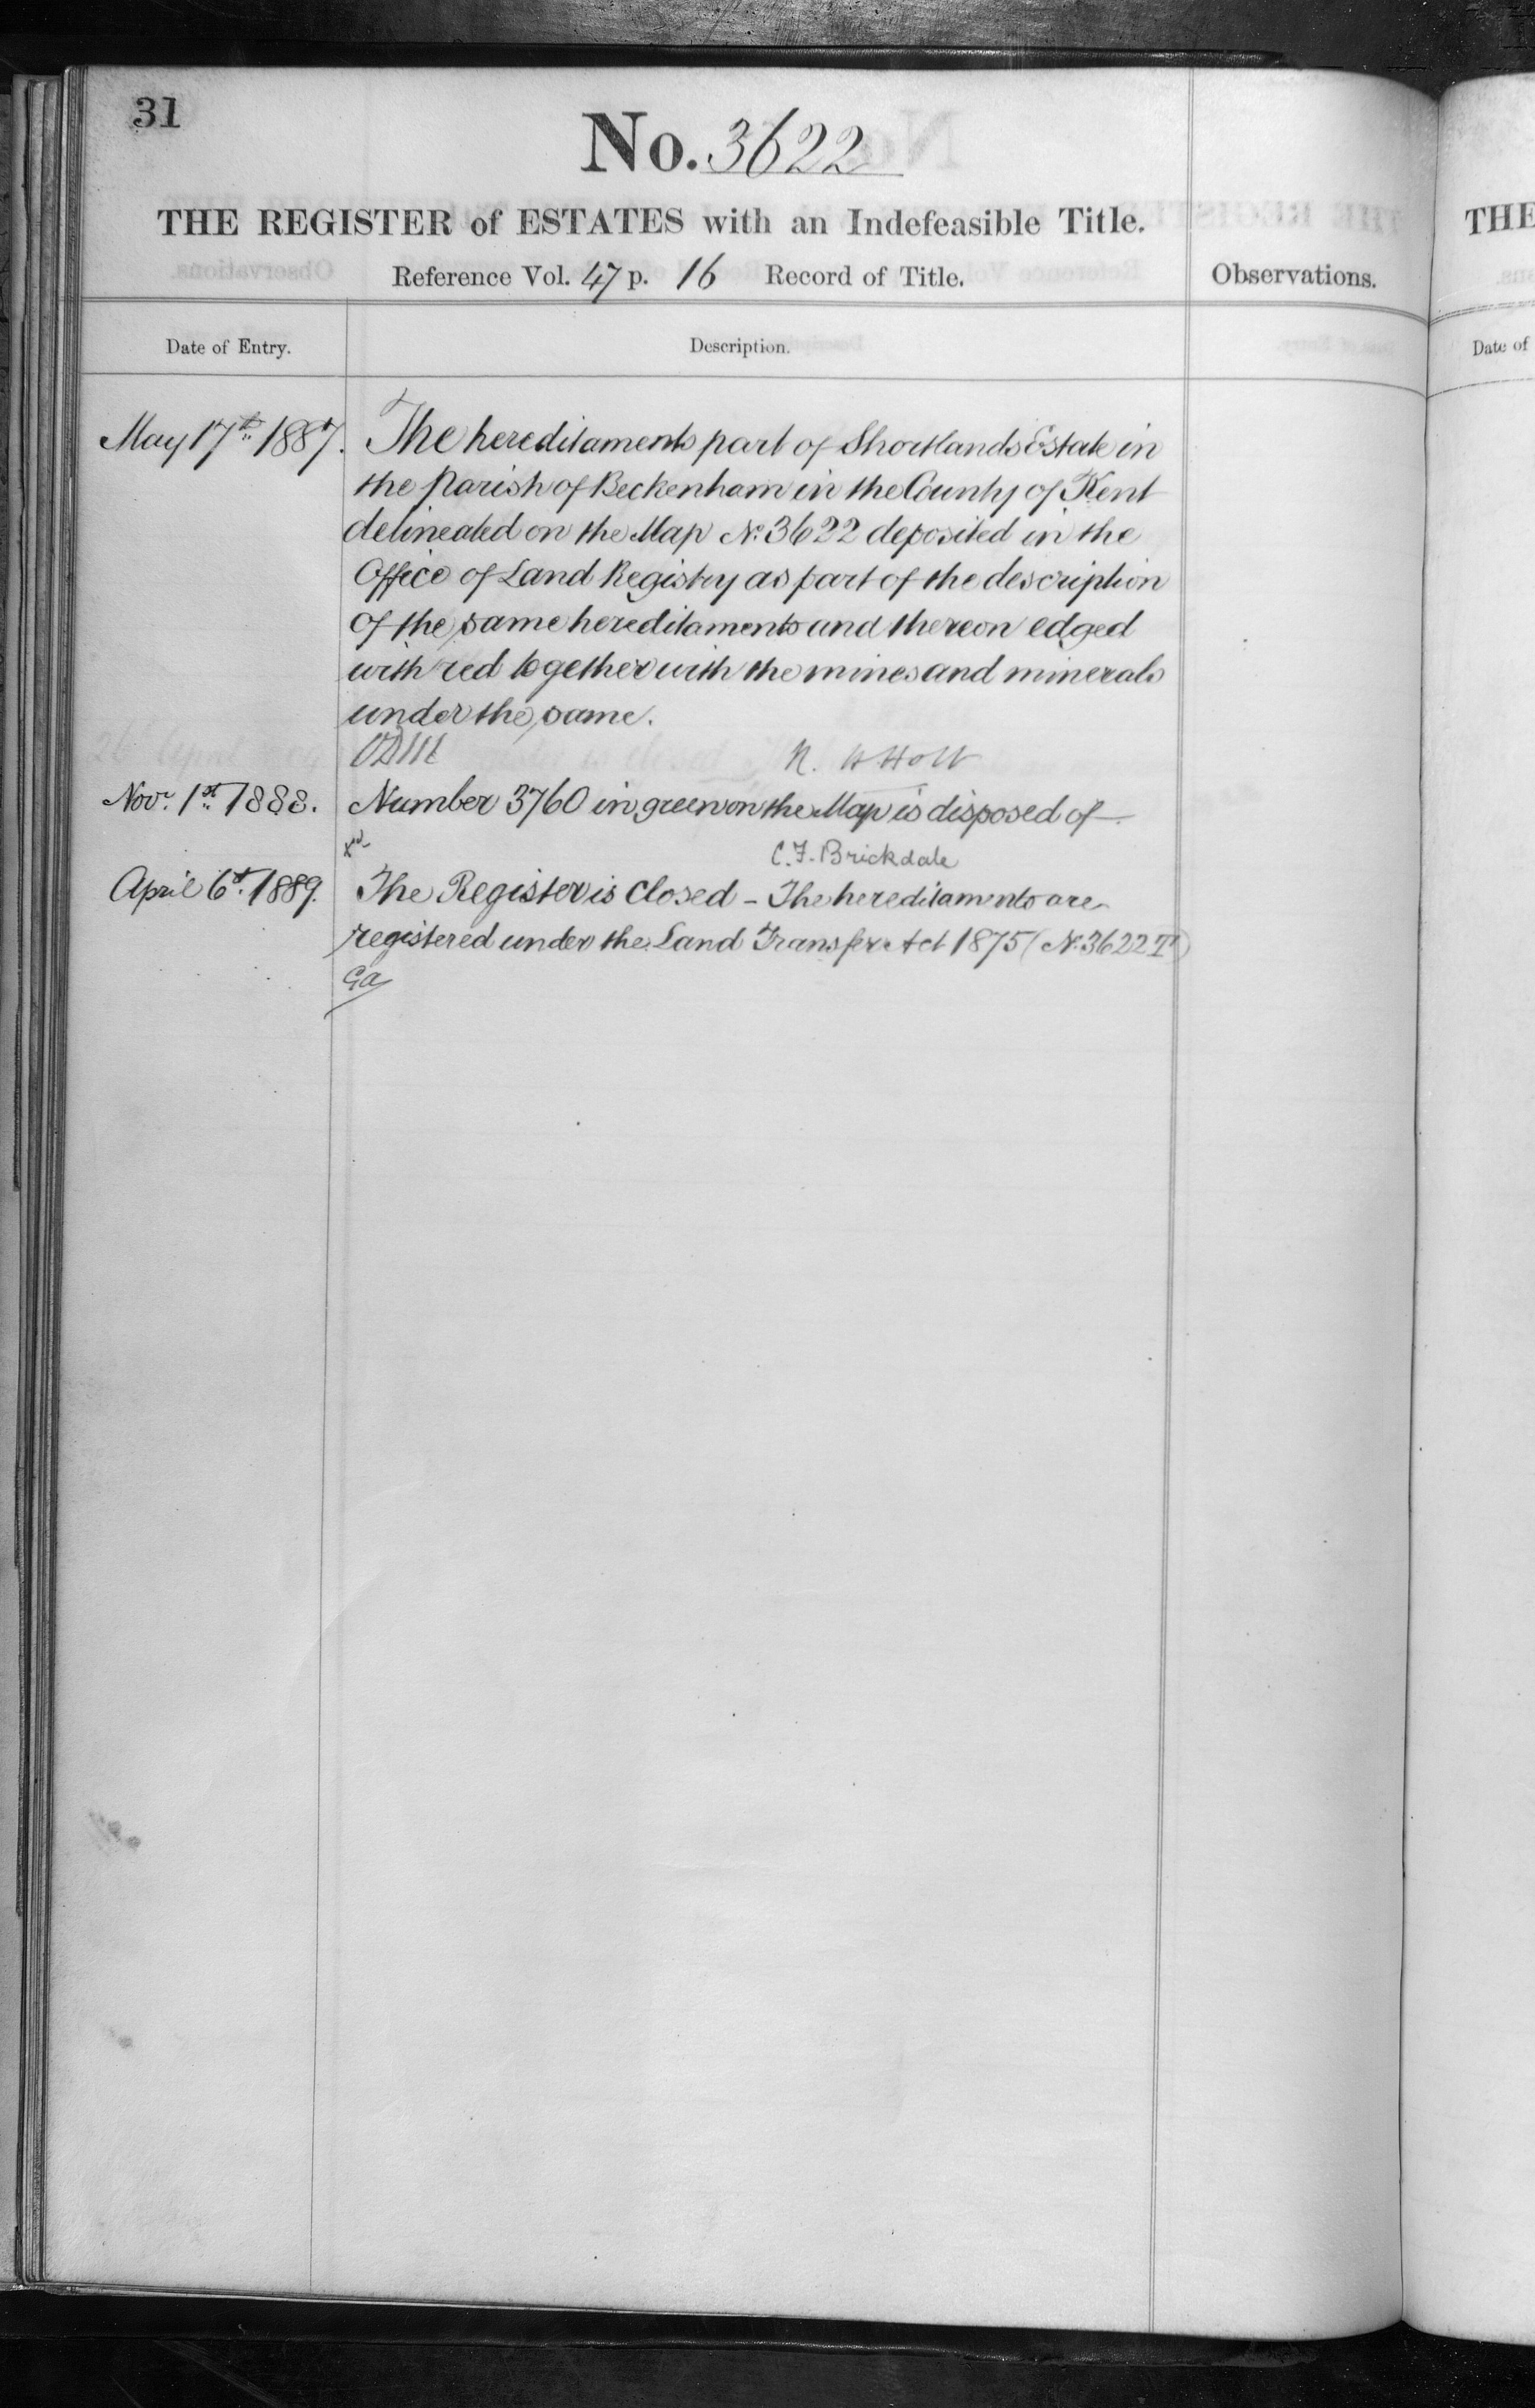 31
No. 3622
THE REGISTER of ESTATES with an Indefeasible Title.
Reference Vol. 47 p. 16 Record of Title.
Observations.
Date of Entry.
Description.
May 17th 1887. The hereditaments part of Shortlands Estate in
the Parish of Beckenham in the County of Kent
delineated on the Map No. 3622 deposited in the
Office of Land Registry as part of the description
of the same hereditaments and thereon edged
with red together with the mines and minerals
under the same.
Holt
Novr. 1st 1888. Number 3760 in green on the Map is disposed of.
C.F. Brickdale
April 6th 1889. The Register is Closed - The hereditaments are
registered under the Land Transfer Act 1875 (No. 3622 T)
Ga
THE
Date of